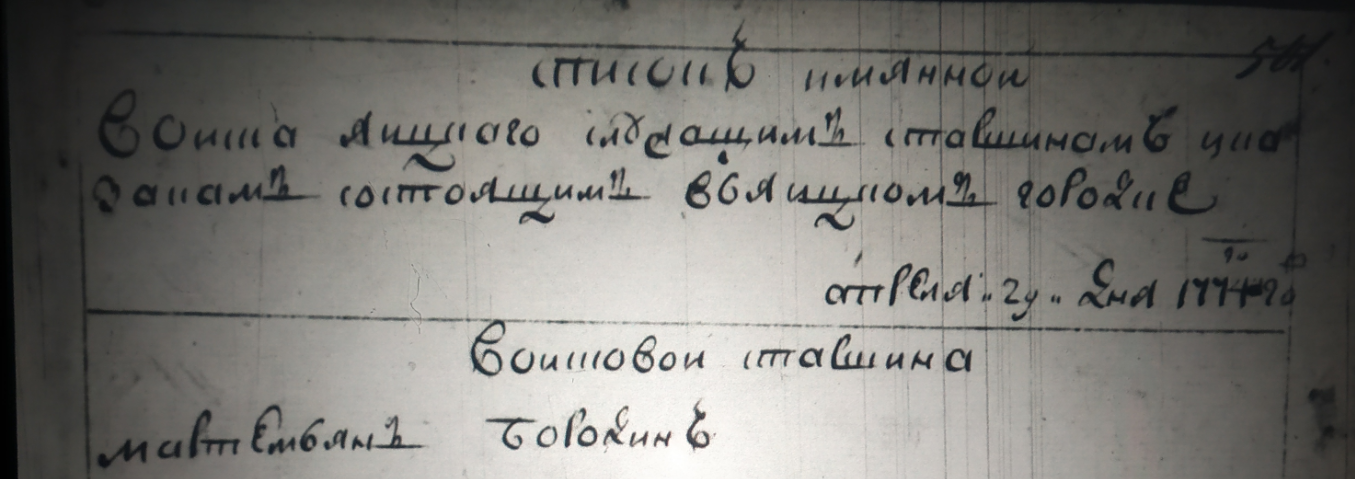 списокъ имянной
Воиска яицкаго следащимъ старшинамъ ика
закамъ состоящимъ въ яицкомъ городке
апреля 2г дня 1774 го
Воисковои старшина
мартемьянъ бородинъ